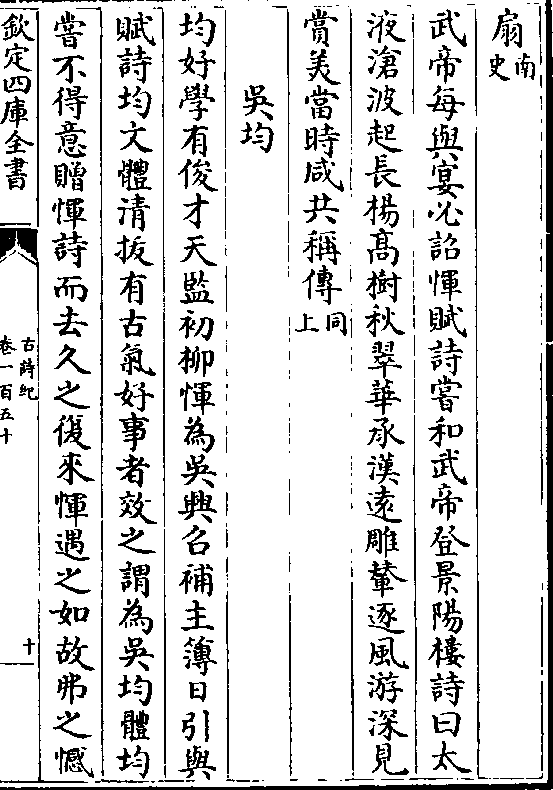 扇南史
武帝每與宴必詔惲賦詩嘗和武帝登景陽樓詩曰太
液滄波起長楊髙樹秋翠華承漢遠雕輦逐風游深見
賞美當時咸共稱傳同上
吳均
均好學有俊才天監初柳惲為吳興召補主簿日引與
賦詩均文體清拔有古氣好事者效之謂為吳均體均
嘗不得意贈惲詩而去久之復來惲遇之如故弗之憾
欽定四庫全書
古詩紀
卷一百五十
十